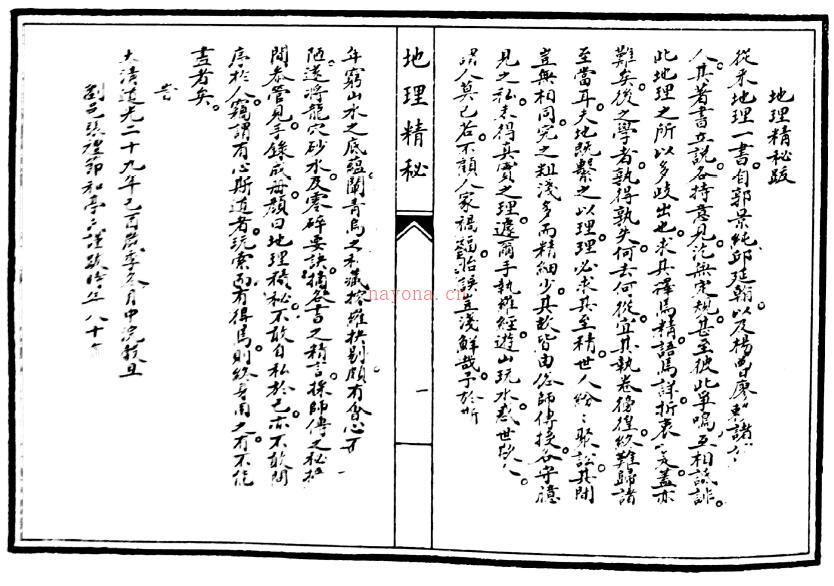 地理精秘跋
從來地理一書自郭景純邱延翰以及楊曾廖賴諸
人其著書立說各持意見茫無定規甚至彼此爭鳴互相詆誹
此地理之所以多歧出也求其擇焉精語焉詳折衷蓋亦
難矣後之學者孰得孰失何去何從宜其執卷徬徨終難歸諸
至當耳夫地既繫之以理理必求其至精世人紛紛聚訟其間
豈無相同究之粗淺多而精細少其故皆由師傳授各守臆
見之私未得真實之理遽爾手執羅經遊山玩水惑世
人莫己若不顧人家禍福貽誤豈淺鮮哉予於
年窮山水之底蘊闡青烏之秘藏搜羅抉剔頗有會心
陋遂將龍穴砂水及零碎要訣摘各書之精言採師傳之秘
間參管見手錄成冊顏曰地理精秘不敢自私於己亦不敢
於人竊謂有心斯道者玩索而有得焉則終身用之有不能
盡者矣
大清道光二十九年己酉歲季冬月中浣穀旦
劉邑張禮節和亭氏謹跋時年八十
地理精秘
一
nayona.cn